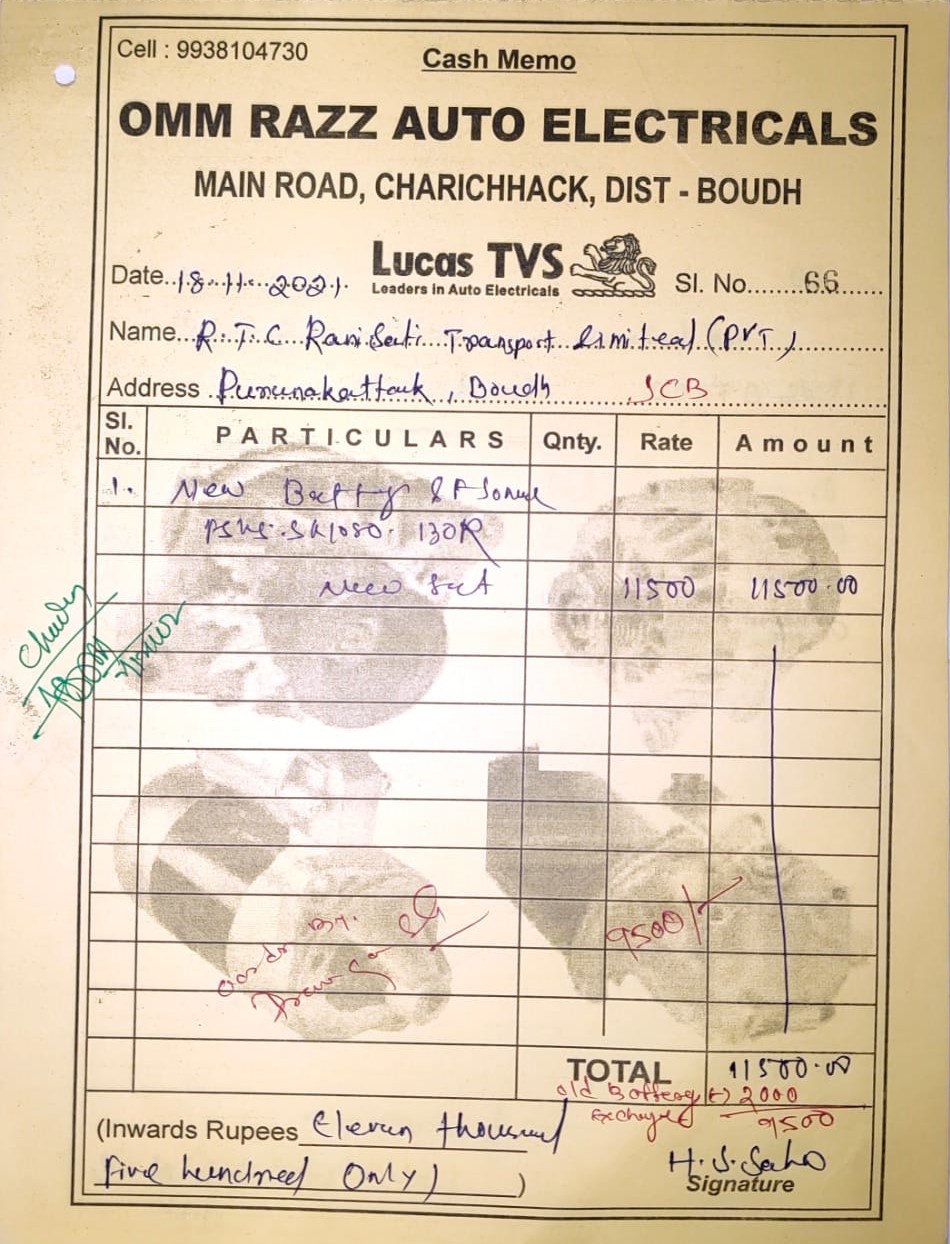 Cell : 9938104730
Cash Memo
OMM RAZZ AUTO ELECTRICALS
MAIN ROAD, CHARICHHACK, DIST - BOUDH
Lucas TVS
Leaders in Auto Electricals
Date..18.11.2021.
Sl. No.......66......
Name...R.T.C. Rani Sati Transport Limited (PVT)
Address Purunakattack, Boudh JCB
Sl. No. PARTICULARS Qnty. Rate Amount
1. New
130R
New 11500 11500.00
9500/-
TOTAL 11500.00
old Battery (-) 2000
Exchange 9500
(Inwards Rupees Eleven thousand
five hundred Only)
)
H.S. Saho
Signature